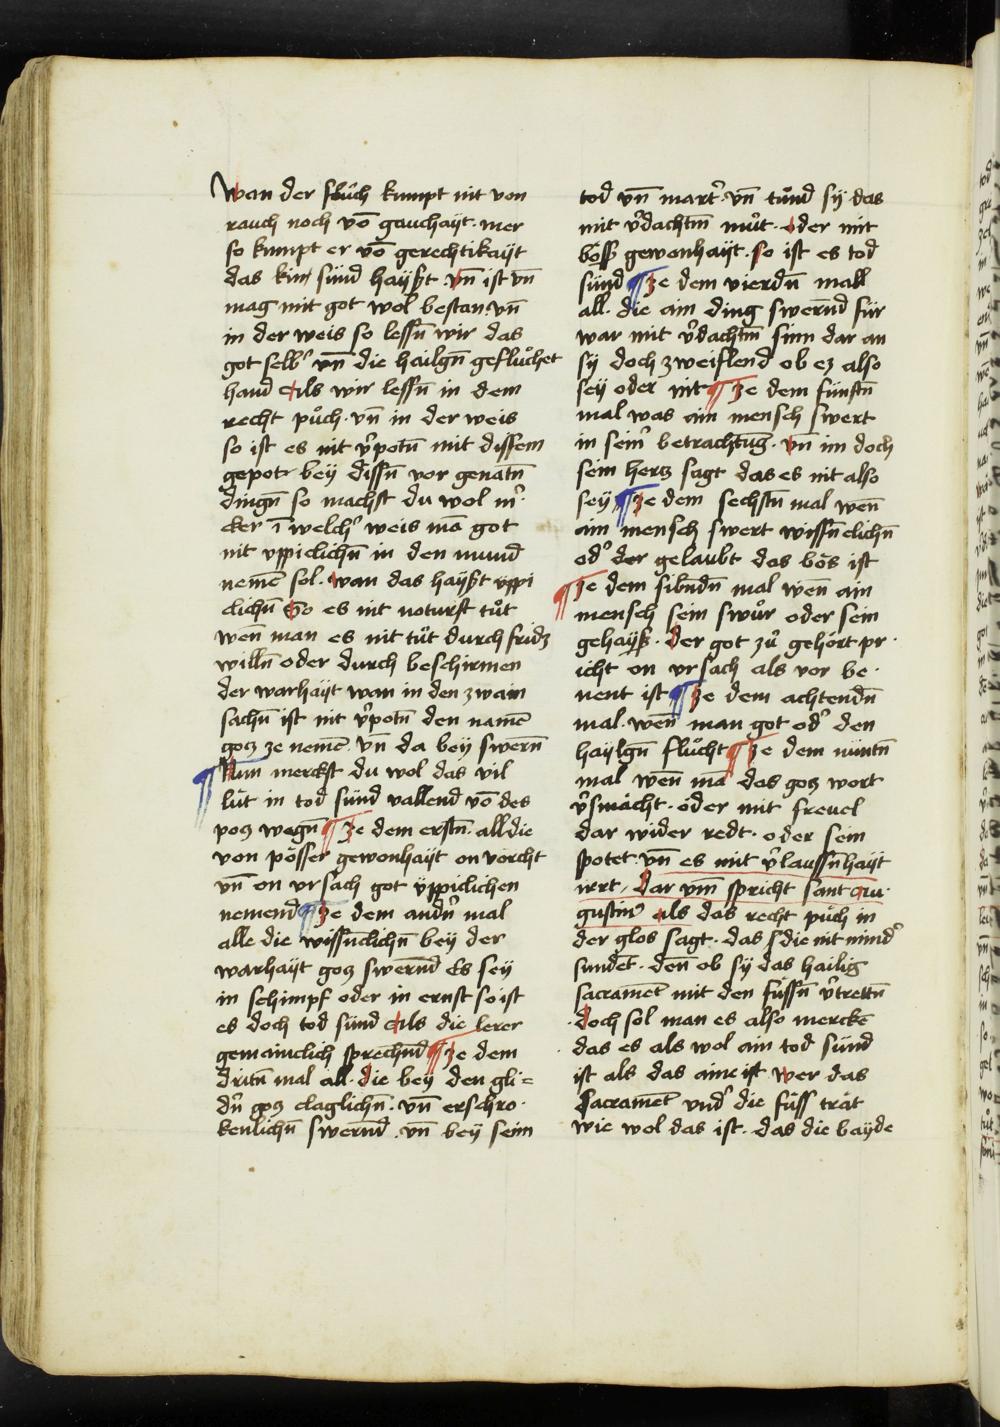 Wan der fluͦch kumpt nit von
rauch noch vō gauchaÿt · mer
so kumpt er vō gerechtikaÿt
das kain sünd haÿßt · vn̄ ist vn̄
mag mit got wol bestan · vn̄
in der weis so lessn̄ wir das
got selbs vn̄ die hailgn̄ gefluͦchet
hand Als wir lessn̄ in dem
recht puͦch · vn̄ in der weis
so ist es nit v̉potn̄ mit dissem
gepot · beÿ dissn̄ vor genātn̄
dingn̄ so machst du wol m̉
cker ī welch̉ weis ma got
nit vppiclichn̄ in den mund
nemē sol · wan das haÿßt vppi
clichn̄ So es nit noturft tuͦt
wen̄ man es nit tuͦt durch fridz
willn̄ oder durch beschirmen
der warhaÿt wan in den zwain
sachn̄ ist nit v̉potn̄ den namē
gocz ze nemē · vn̄ da beÿ swern̄
¶ Nun merckst du wol das vil
lüt in tod sünd vallend vō des
pocz wegn̄ ¶ Ze dem erstn̄ · all die
von pösser gewonhaÿt on vorcht
vn̄ on vrsach got üppiclichen
nemend ¶ Ze dem andn̉ mal
alle die wissn̄clichn̄ beÿ der
warhaÿt gocz swernd Es seÿ
in schimpf oder in ernst so ist
es doch tod sünd Als die lerer
gemainclich sprechn̄d ¶ Ze dem
dritn̄ mal all · die beÿ den gli=
dn̉ gocz claglichn̄ · vn̄ erschro ·
kenlichn̄ swernd · vn̄ beÿ seim
tod vn̄ mart̉ · vn̄ tuͦnd sÿ das
mit v̉dachtm̄ muͦt · oder mit
bösß gewonhaÿt · so ist es tod
sünd ¶ Ze dem vierdn̄ mall
all · die ain ding swernd für
war mit v̉dachtm̄ sinn dar an
sÿ doch zweiflend ob ez also
seÿ oder nit ¶ Ze dem fünftn̄
mal was ain mensch swert
in sein̉ betrachtūg · vn̄ im doch
sein hercz sagt das es nit also
seÿ ¶ Ze dem sechstn̄ mal wen̄
ain mensch swert wissn̄clichn̄
od̉ der gelaubt das bös ist
¶ Ze dem sibndn̄ mal wen̄ ain
mensch sein swuͦr oder sein
gehaÿß · der got zuͦ gehört pr ·
icht on vrsach als vor be ·
nent ist ¶ Ze dem achtendn̄
mal · wen̄ man got od̉ den
haÿlgn̄ fluͦcht ¶ Ze dem nüntn̄
mal wen̄ mā das gocz wort
v̉smächt · oder mit frevel
dar wider redt · oder sein
spotet · vn̄ es mit v̉laussn̄haÿt
irrt · Dar vm̄ spricht sant Au ·
gustin̉ als das recht puͦch in
der glos sagt · das die nit mind̉
sundet · den̄ ob sÿ das hailig
sacramēt mit den füssn̄ v̉trettn̄
· Doch sol man es also merckē
das es als wol ain tod sünd
ist als das aine ist wer das
Sacramēt und̉ die füss trät
wie wol das ist · das die baÿde